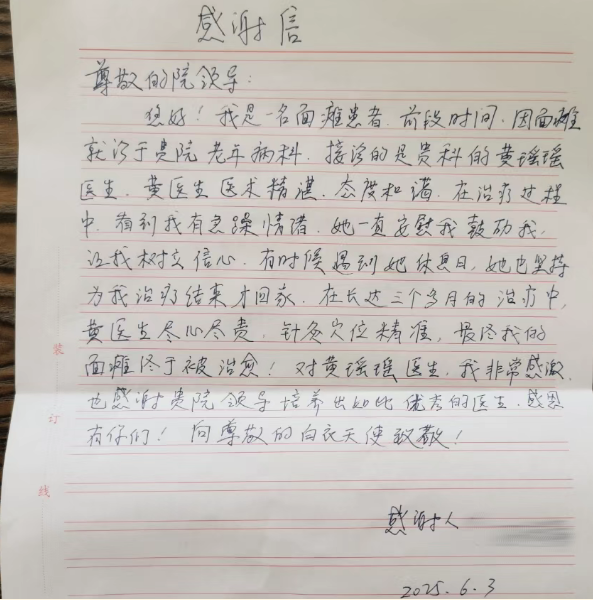 感谢信
尊敬的院领导:
您好!我是一名面瘫患者.前段时间.因面瘫
就诊于贵院老年病科.接诊的是贵科的黄瑶瑶
医生.黄医生医术精湛.态度和谒.在治疗过程
中.看到我有急躁情绪.她一直安慰我鼓励我,
让我树立信心.有时候遇到她休息日,她也坚持
为我治疗结束才回家.在长达三个多月的治疗中,
黄医生尽心尽责,针灸穴位精准,最终我的
面瘫终于被治愈!对黄瑶瑶医生,我非常感激.
也感谢贵院领导培养出如此优秀的医生.感恩
有你们!向尊敬的白衣天使致敬!
感谢人
2025.6.3
装
订
线